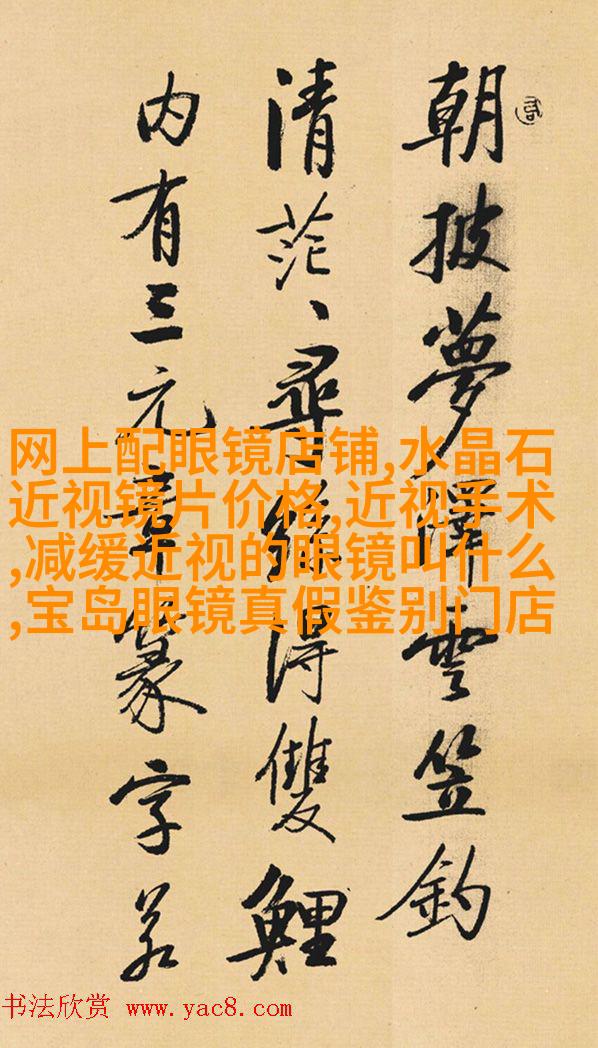 朝披夢澤雲笠釣
清茫、尋絲得雙鯉
内有三元章篆字若
网上配眼镜店铺,水晶石
近视镜片价格,近视手术
,减缓近视的眼镜叫什么
,宝岛眼镜真假鉴别门店
书法欣赏 www.yac8.com